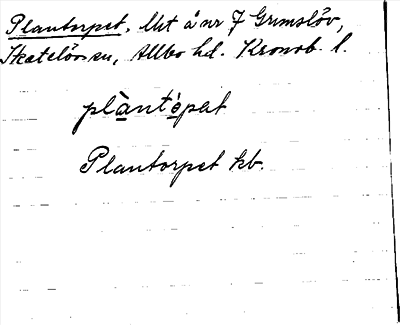 Plantorpet, lht å nr 7 Grimslöv,
Skatelövs sn, Allbo hd. Kronob. l.
plàntópat
Plantorpet kb.